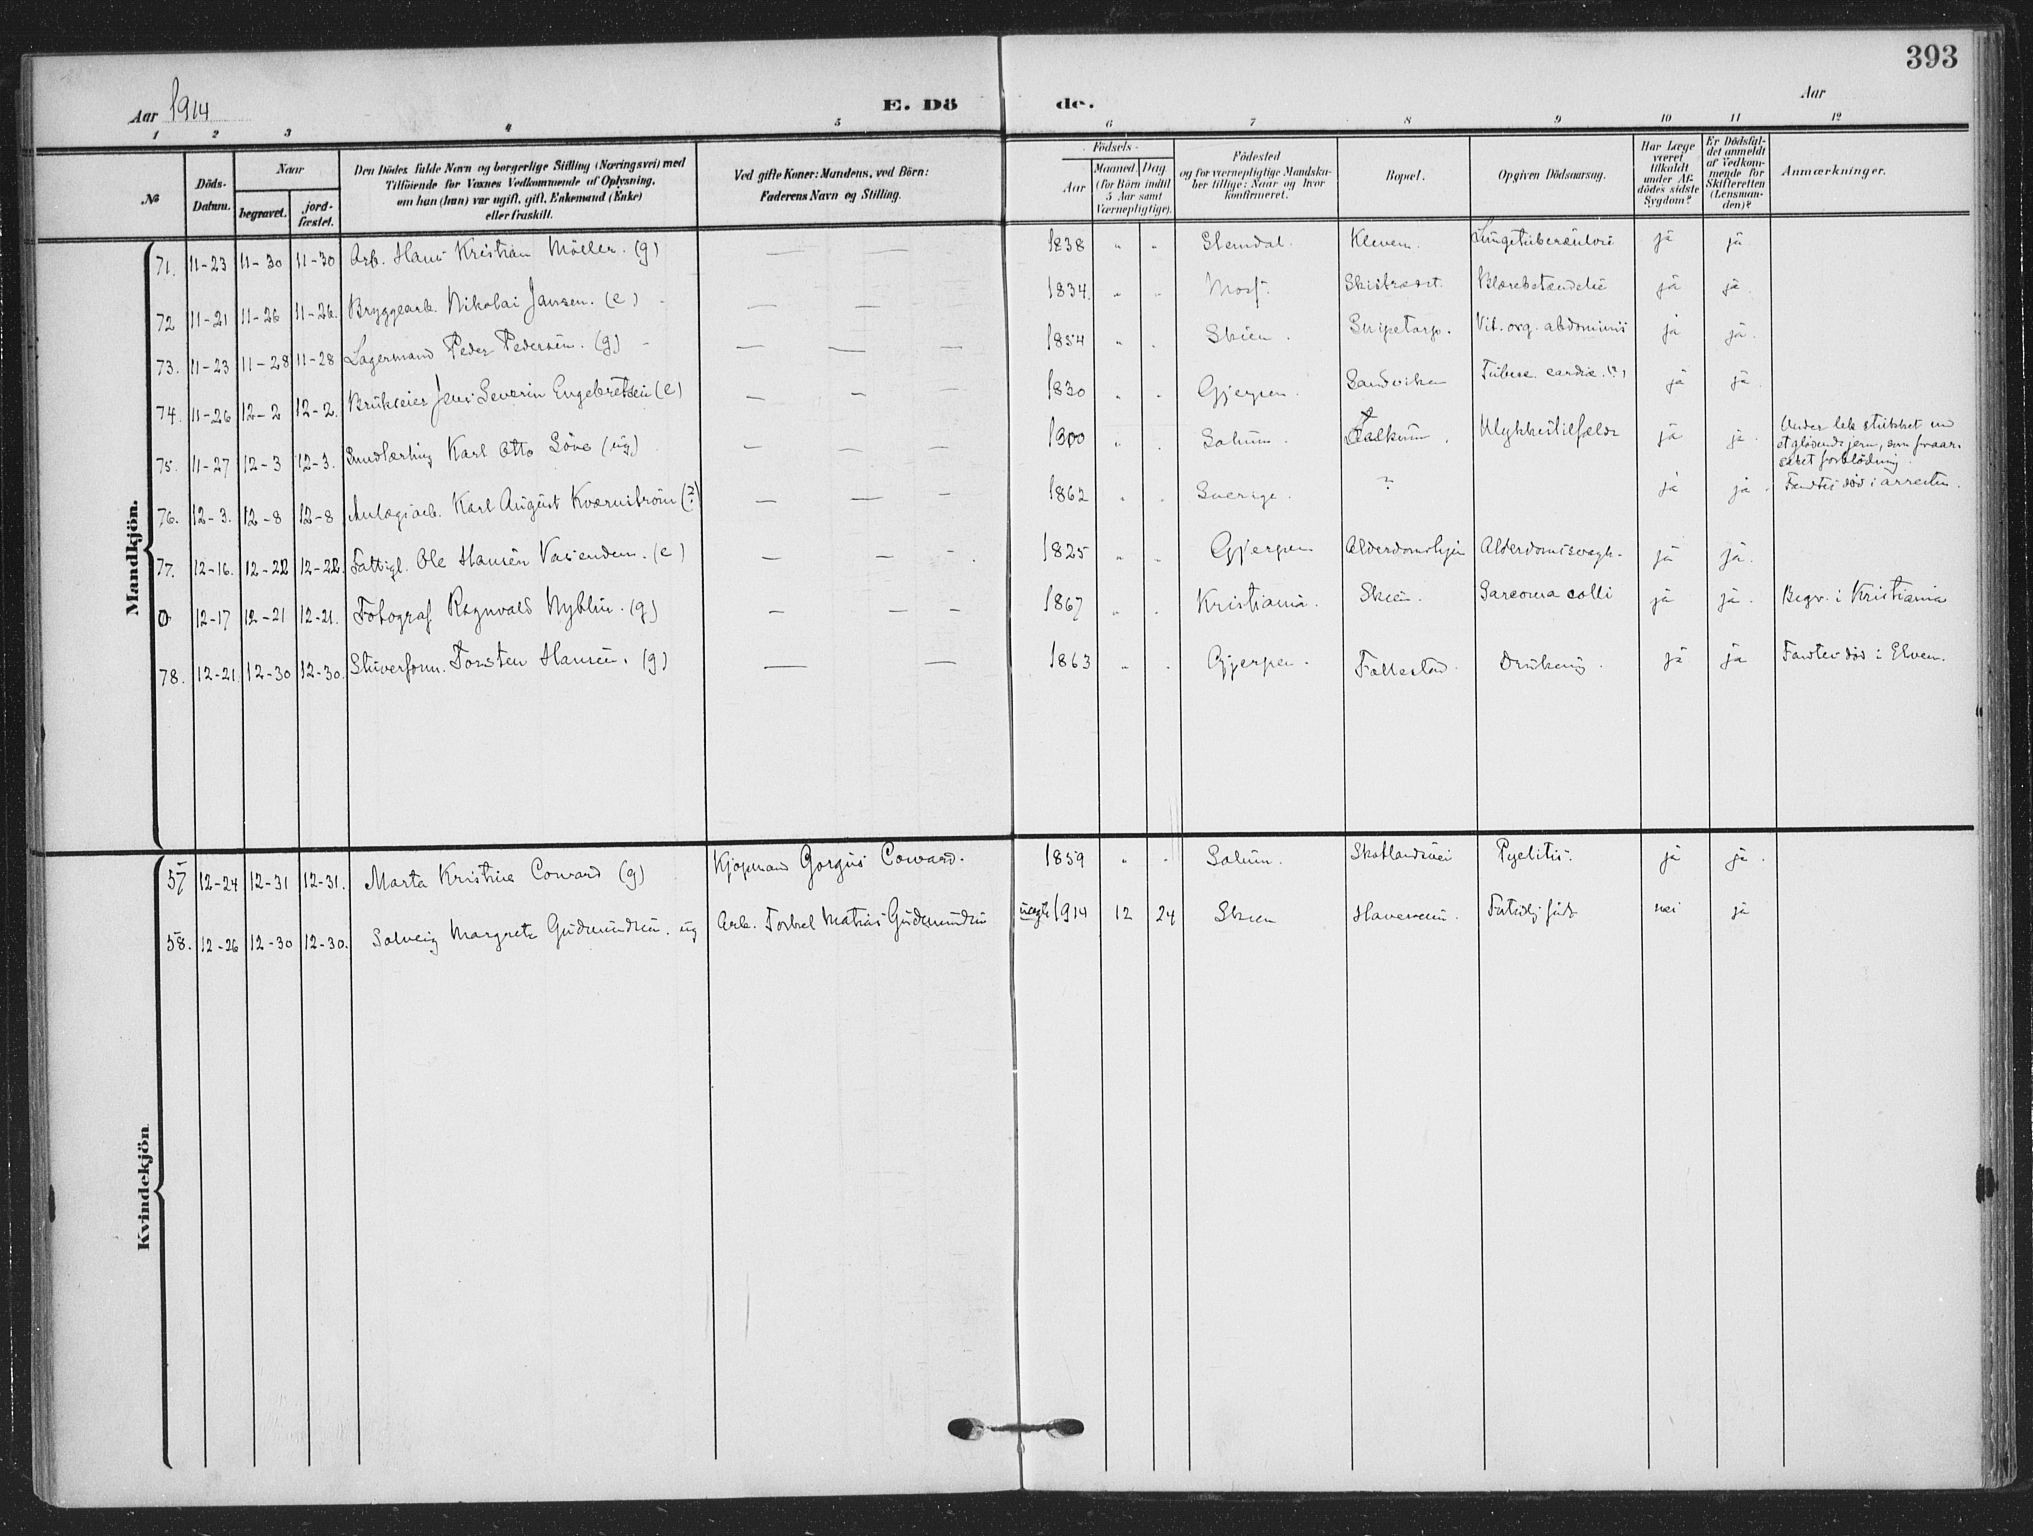 393
Aar 1914
E. Dö de.
Aar
1 2 3 4 5 6 7 8 9 10 11 12
№
Döds-Datum.
Naar
begravet.
jord-fæstet.
Den Dödes fulde Navn og borgerlige Stilling (Næringsvei) med
Tilföiende for Voxnes Vedkommende af Oplysning,
om han (hun) var ugift, gift, Enkemand (Enke)
eller fraskilt.
Ved gifte Koner: Mandens, ved Börn:
Faderens Navn og Stilling.
Födsels-
Aar
Maaned Dag
(for Börn indtil
5 Aar samt
Værnepligtige).
Födested
og for værnepligtige Mandska-
ber tillige: Naar og hvor
konfirmeret.
Bopæl.
Opgiven Dödsaarsag.
Har Læge
været
tilkaldt
under Af-
dödes sidste
Sygdom?
Er Dödsfal-
det anmeldt
af Vedkom-
mende for
Skifteretten
(Lensman-
den)?
Anmærkninger.
Mandkjön.
71. 11-23 11-30 11-30 Arb. Hans Kristian Möller. (g) — — 1838 " " Slemdal. Kleven. Lungetuberkulose ja ja
72 11-21 11-26 11-26. Bryggearb. Nikolai Jansen. (e) — — 1834. " " Moss. Skistredet. Blærebetændelse ja ja.
73. 11-23 11-28 11-28 Lagermand Peder Pedersen. (g) — — — 1854 " " Skien. Snipetorp. Vit. org. abdominis ja ja.
74. 11-26 12-2 12-2. Brukseier Jens Severin Engebretsen (e) — — 1830 " " Gjerpen. Sandviken cardiæ. (?) ja ja.
75. 11-27 12-3 12-3. Karl Otto (ug) — — — " " Solum. Ulykkestilfælde ja ja. Under lek stukket med
et glödende jern, som foraar-
saket forblödning.
76. 12-3. 12-8 12-8 Anlægsarb. Karl August Kværnström (?) — — — 1862 " " Sverige. ? ja ja. Fandtes död i arresten.
77. 12-16. 12-22 12-22. Fattigl. Ole Hansen Vasenden. (e) — — - 1825 " " Gjerpen Alderdomshjem Alderdomssvagh. ja ja.
0 12-17 12-21 12-21. Fotograf Ragnvald Nyblin. (g) — — — 1867 " " Kristiania. Skien. Sarcoma colli ja ja. Begr. i Kristiania
78. 12-21. 12-30 12-30. Stuverform. Torsten Hansen. (g) — — 1863 " " Gjerpen. Follestad. Drukning. ja ja Fandtes död i Elven.
Kvindekjön
57 12-24 12-31 12-31. Marta Kristine Coward (g) Kjöpmand Gorgus Coward. 1859 " " Solum. Skotlandsvei Pyelitis. ja ja.
58. 12-26 12-30 12-30. Solveig Margrete Gudmundsen. ug Arb. Torkel Matias Gudmundsen uegte 1914 12 24 Skien Haveveien. Fortidlig född nei ja